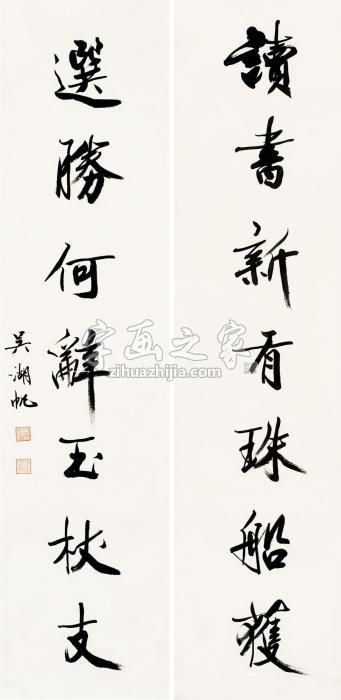 讀書新有珠船獲
選勝何辭玉杖支
吳湖帆
字画之家
zihuazhijia.com